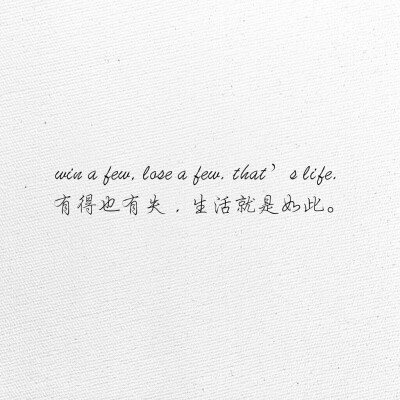 win a few, lose a few, that’s life.
有得也有失，生活就是如此。